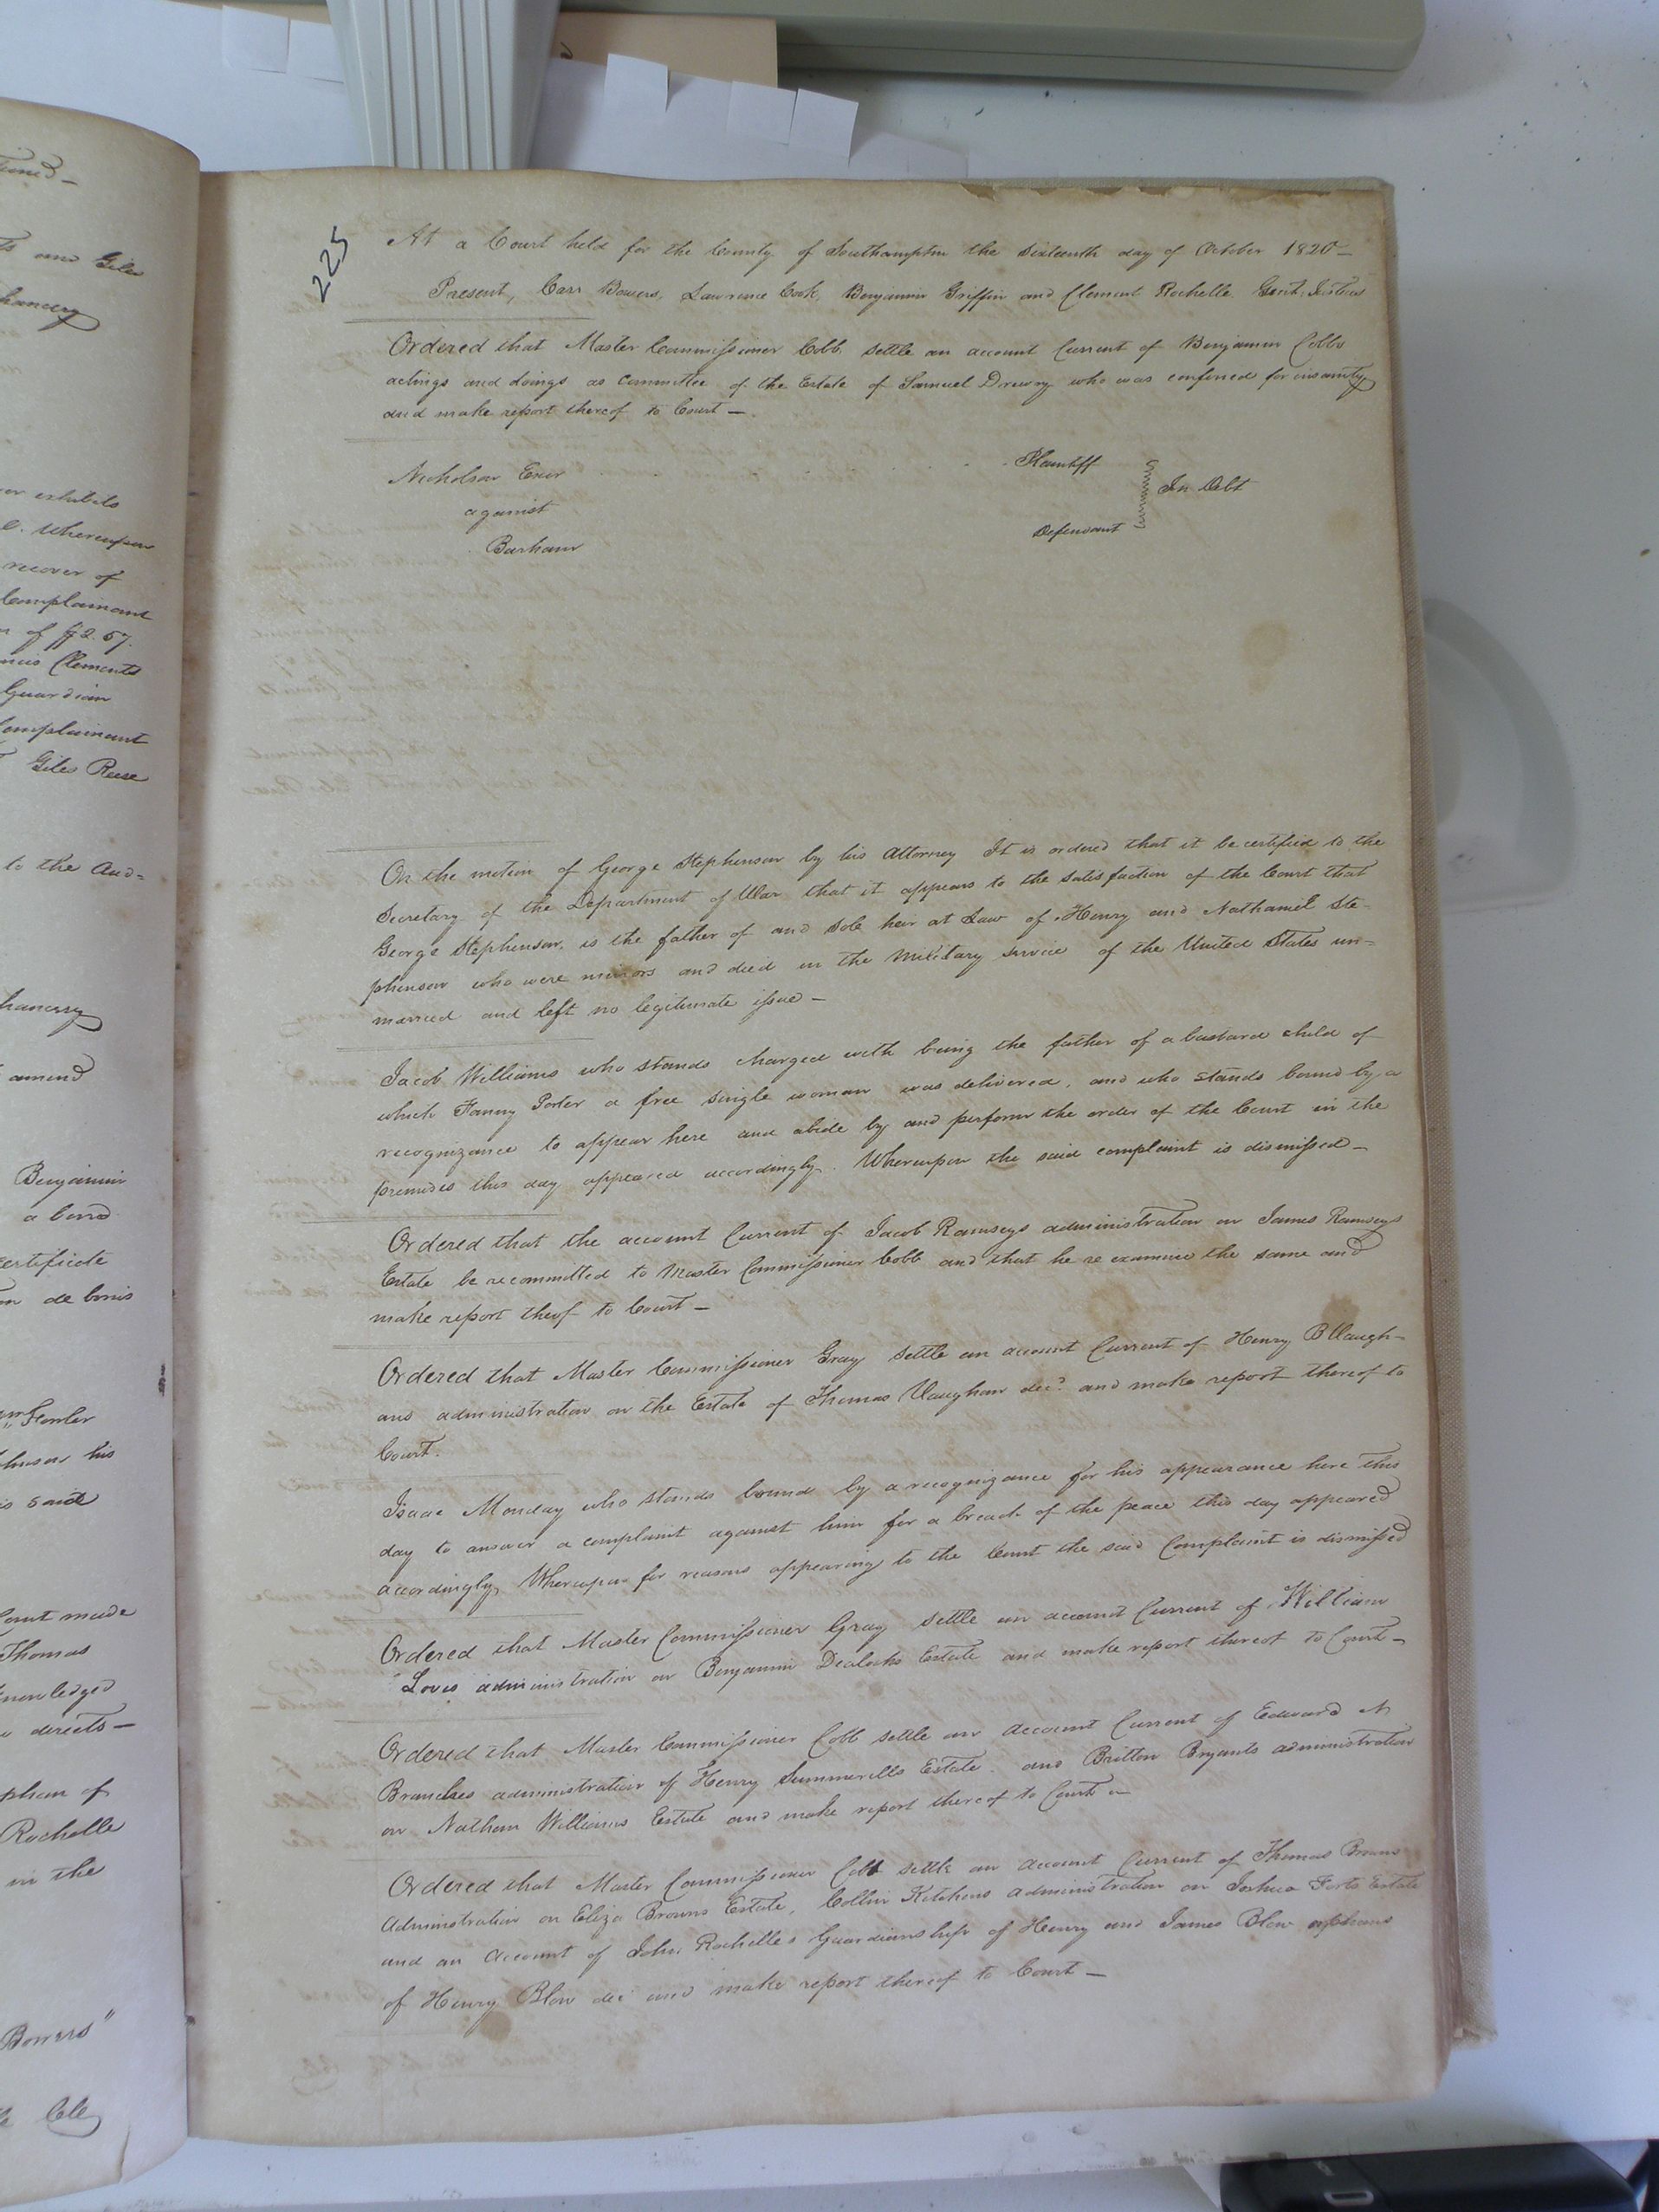 tined-
ts and Giles
hancery
er exhibits
e. Whereupon
recover of
Complainant
n of $2.57.
ncis Clements
Guardian
Complainant
Giles Reese
to the Aud=
hancery
amend
Benjamin
a bond
certificate
on de bonis
Fowler
his
is said
Court made
Thomas
knowledged
directs-
phan of
Rochelle
in the
Bowers"
225
At a Court held for the County of Southampton the Sixteenth day of October 1820-
Present, Carr Bowers, Lawrence Cook, Benjamin Griffin and Clement Rochelle Gent. Justices
Ordered that Master Commissioner Cobb settle an account Current of Benjamin Cobbs
actings and doings as committee of the Estate of Samuel Drewry who was confined for insanity
and make report thereof to Court-
Nicholson Exor Plaintiff
against In Debt
Barham Defendant
On the motion of George Stephenson by his Attorney It is ordered that it be certified to the
Secretary of the Department of War that it appears to the satisfaction of the Court that
George Stephenson, is the father of and sole heir at Law of Henry and Nathaniel Ste-
phenson who were minors and died in the Military service of the United States un=
married and left no legitimate issue-
Jacob Williams who stands charged with being the father of a bastard child of
which Fanny Porter a free single woman was delivered, and who stands bound by a
recognizance to appear here and abide by and perform the order of the Court in the
premises this day appeared accordingly. Whereupon the said complaint is dismissed-
Ordered that the account Current of Jacob Ramseys administration on James Ramseys
Estate be recommitted to Master Commissioner Cobb and that he re examine the same and
make report theof to Court-
Ordered that Master Commissioner Gray settle an account Current of Henry B Vaugh-
ans administration on the Estate of Thomas Vaughan decd. and make report thereof to
Court.
Isaac Monday who stands bound by a recognizance for his appearance here this
day to answer a complaint against him for a breach of the peace this day appeared
accordingly, Whereupon for reasons appearing to the Court the said Complaint is dismissed
Ordered that Master Commissioner Gray settle an account Current of William
Loves administration on Benjamin Dealoachs Estate and make report thereof to Court-
Ordered that Master Commissioner Cobb settle an Account Current of Edward N
Branches administration of Henry Summerells Estate. and Britton Bryants administration
on Nathan Williams Estate and make report thereof to Court-
Ordered that Master Commissioner Cobb settle an Account Current of Thomas Browns
Administration on Eliza Browns Estate, Collin Kitchens administration on Joshua Forts Estate
and an Account of John Rochelles Guardianship of Henry and James Blow orphans
of Henry Blow dec and make report thereof to Court-